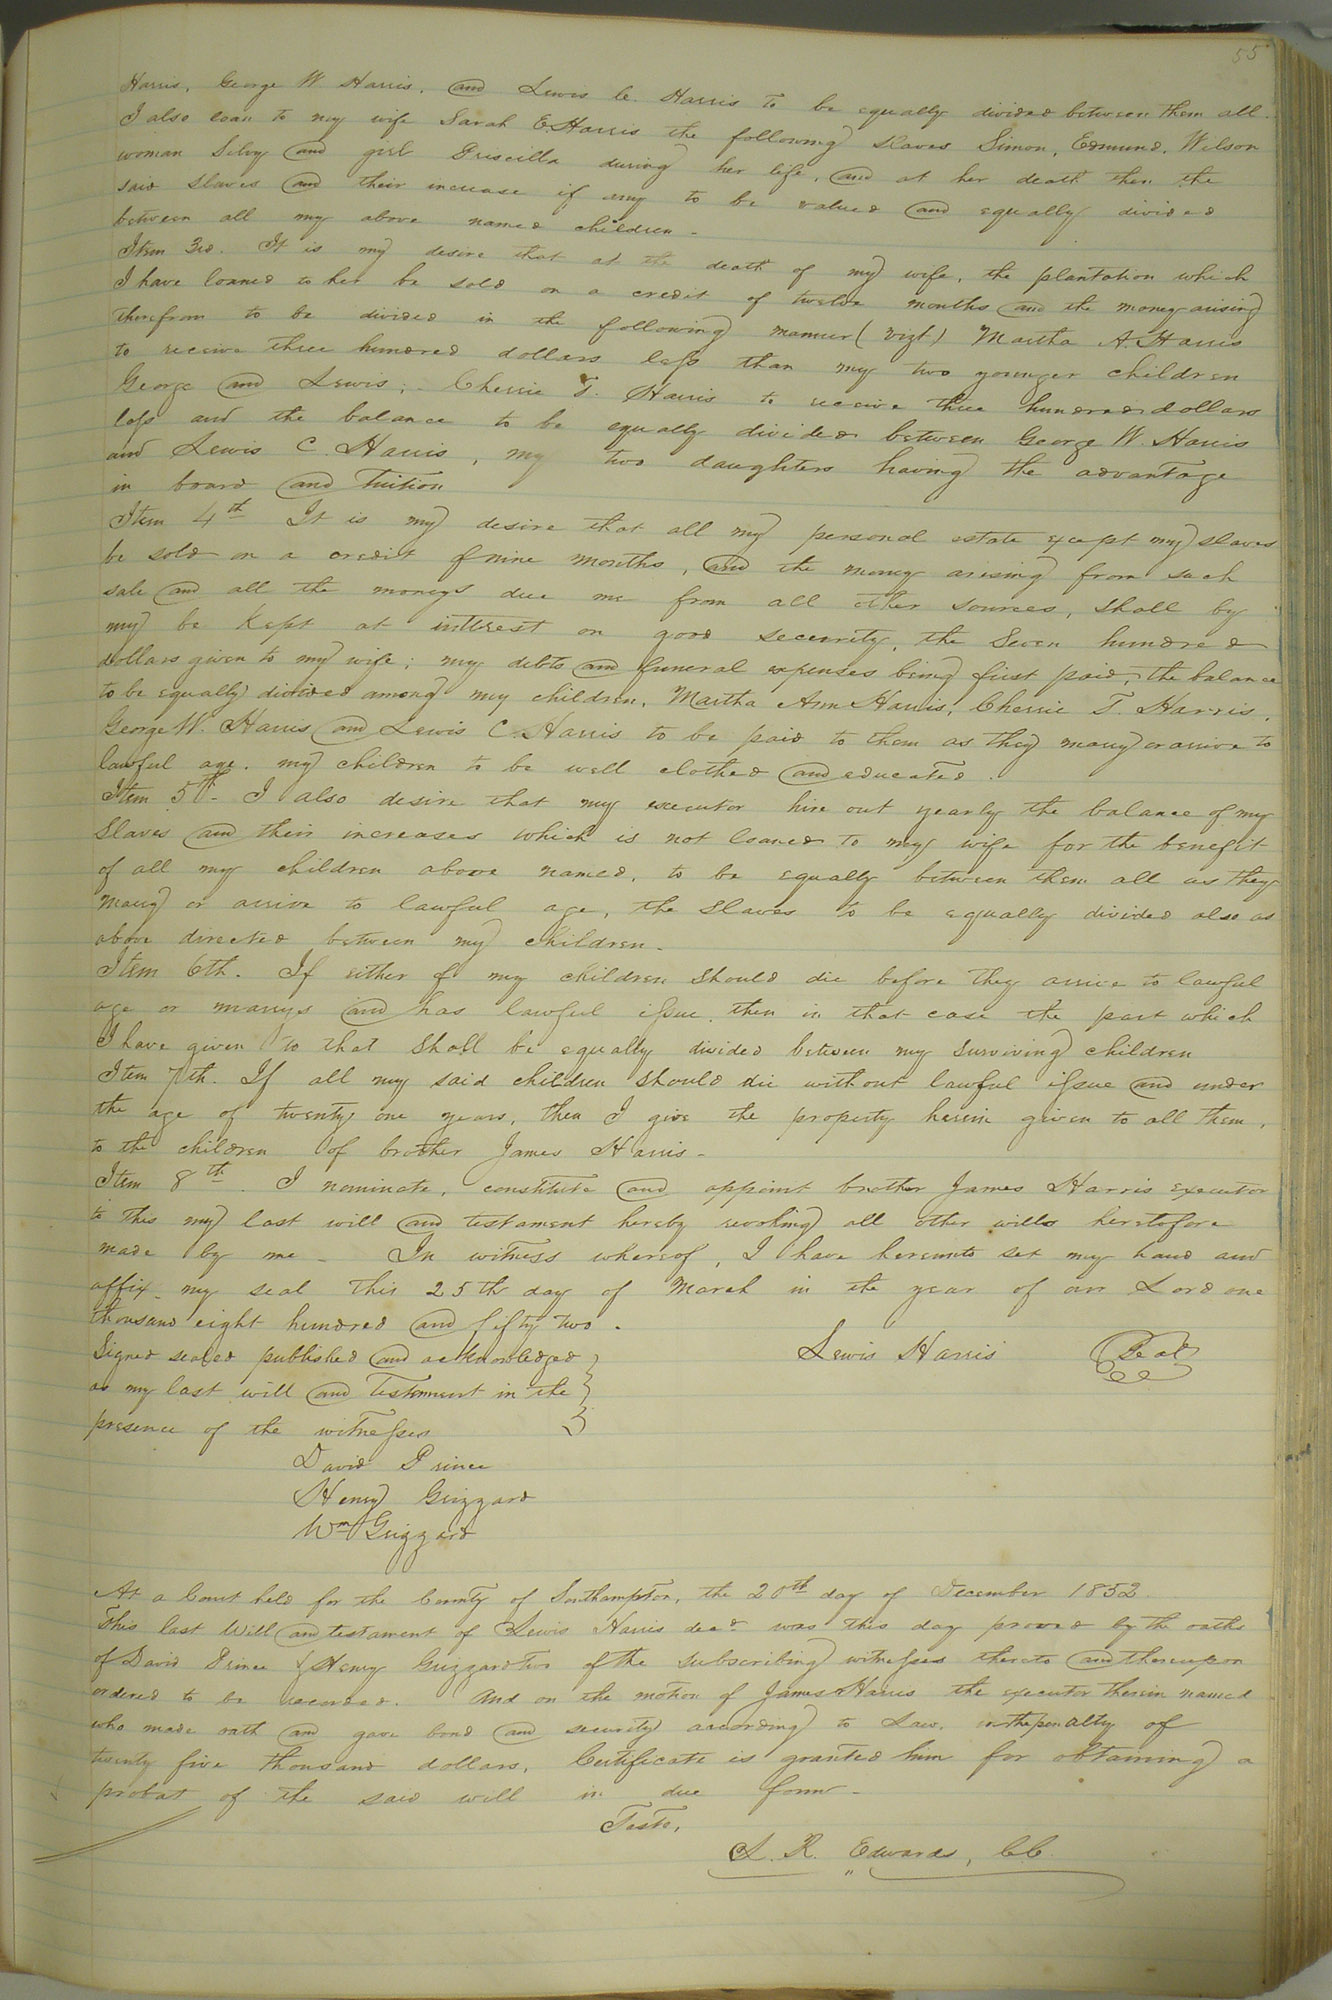 55
Harris, George W Harris, and Lewis C. Harris to be equally divided between them all.
I also loan to my wife Sarah E Harris the following slaves Simon, Edmund, Wilson
woman Silvy and girl Priscilla during her life, and at her death then the
said slaves and their increase if any to be valued and equally divided
between all my above named children -
Item 3rd. It is my desire that at the death of my wife, the plantation which
I have loaned to her be sold on a credit of twelve months and the money arising
therefrom to be divided in the following manner (vizt) Martha A Harris
to receive three hundred dollars less than my two younger children
George and Lewis; Cherrie T. Harris to receive three hundred dollars
less and the balance to be equally divided between George W. Harris
and Lewis C. Harris, my two daughters having the advantage
in board and tuition
Item 4th It is my desire that all my personal estate except my slaves
be sold on a credit of nine months, and the money arising from such
sale and all the moneys due me from all other sources, shall by
my be kept at interest on good security, the seven hundred
dollars given to my wife; my debts and funeral expenses being first paid, the balance
to be equally divided among my children, Martha Ann Harris, Cherrie T. Harris,
George W. Harris and Lewis C. Harris to be paid to them as they marry or arrive to
lawful age. my children to be well clothed and educated.
Item 5th - I also desire that my executor hire out yearly the balance of my
slaves and their increases which is not loaned to my wife for the benefit
of all my children above named, to be equally between them all as they
marry or arrive to lawful age, the slaves to be equally divided also as
above directed between my children -
Item 6th. If either of my children should die before they arrive to lawful
age or marrys and has lawful issue, then in that case the part which
I have given to that shall be equally divided between my surviving children
Item 7th. If all my said children should die without lawful issue and under
the age of twenty one years, then I give the property herein given to all them,
to the children of brother James Harris -
Item 8th. I nominate, constitute and appoint brother James Harris executor
to this my last will and testament hereby revoking all other wills heretofore
made by me - In witness whereof, I have hereunto set my hand and
affix my seal this 25th day of March in the year of our Lord one
thousand eight hundred and fifty two.
Signed sealed published and acknowledged Lewis Harris Seal
as my last will and testament in the
presence of the witnesses
David Prince
Henry Grizzard
Wm Grizzard
At a Court held for the County of Southampton, the 20th day of December 1852
This last Will and testament of Lewis Harris decd was this day proved by the oaths
of David Prince & Henry Grizzard two of the subscribing witnesses thereto and thereupon
ordered to be recorded. And on the motion of James Harris the executor therein named
who made oath and gave bond and security according to Law, in the penalty of
twenty five thousand dollars, Certificate is granted him for obtaining a
probat of the said will in due form -
Teste,
L. R. Edwards, CC.